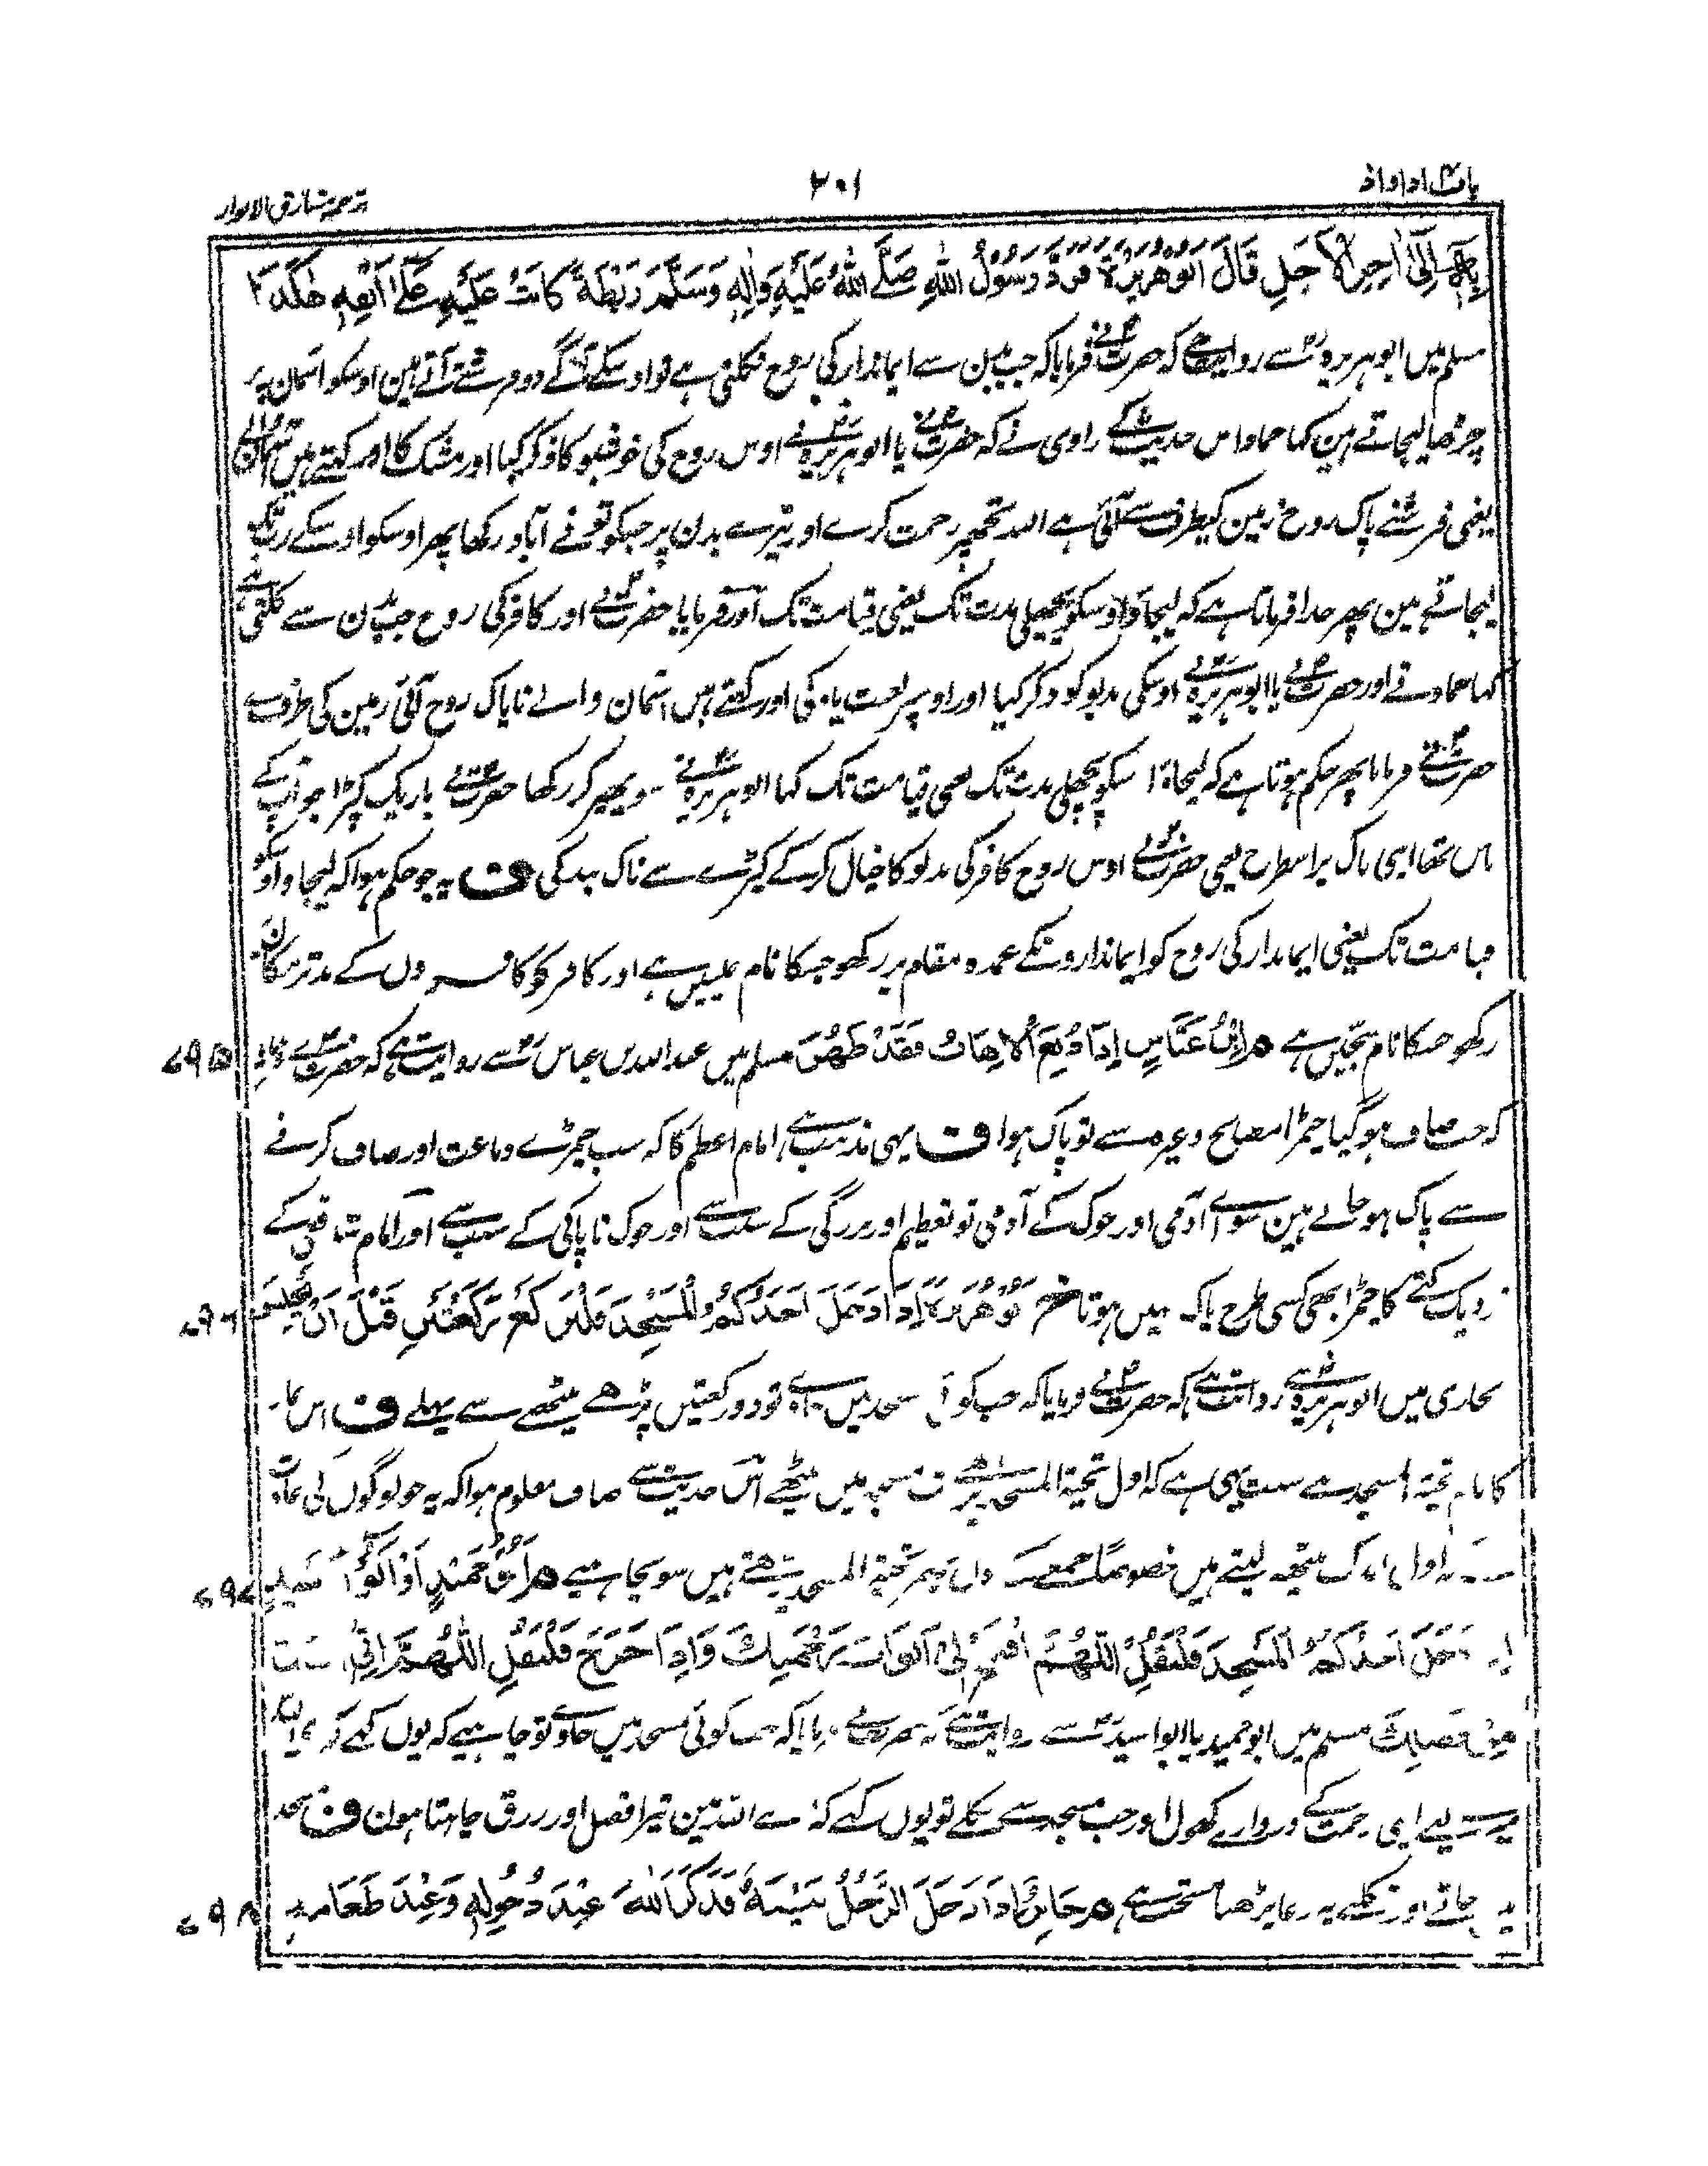 باب اذا و اذ
۲۰۱
ترجمہ مشارق الانوار
بِهٖ اِلٰى اٰخِرِ الْاَجَلِ قَالَ اَبُوْهُرَيْرَةَ فَرَدَّ رَسُوْلُ اللّٰهِ صَلَّى اللّٰهُ عَلَيْهِ وَاٰلِهٖ وَسَلَّمَ رَيْطَةً كَانَتْ عَلَيْهِ عَلٰى اَنْفِهٖ هٰكَذَا
مسلم میں ابو ہریرہؓ سے روایت ہے کہ حضرتؐ نے فرمایا کہ جب بدن سے ایماندار کی روح نکلتی ہے تو اوسکے آگے دو فرشتے آتے ہین اوسکو آسمان پر
چڑھا لیجاتے ہین کہا حماد اس حدیث کے راوی نے کہ حضرتؐ نے یا ابو ہریرہؓ نے اوس روح کی خوشبو کا ذکر کیا اور مشک کا اور کہتے ہیں آسمان والے
یعنی فرشتے پاک روح زمین کیطرف سے آئی ہے اللہ تجھپر رحمت کرے اور تیرے بدن پر جسکو تونے آباد رکھا پھر اوسکو اوسکے رب تک
لیجاتے ہین پھر خدا فرماتا ہے کہ لیجاؤ اوسکو پچھلی مدت تک یعنی قیامت تک اور فرمایا حضرتؐ نے اور کافر کی روح جب بدن سے نکلتی ہے
کہا حماد نے اور حضرتؐ نے یا ابو ہریرہؓ نے اوسکی بدبو کو ذکر کیا اور اوسپر لعنت بیان کی اور کہتے ہیں آسمان والے ناپاک روح آئی زمین کی طرف سے
حضرتؐ نے فرمایا پھر حکم ہوتا ہے کہ لیجاؤ اسکو پچھلی مدت تک یعنی قیامت تک کہا ابو ہریرہؓ نے سو پھیر کر رکھا حضرتؐ نے باریک کپڑا جو آپ کے
پاس تھا اپنی ناک پر اسطرح یعنی حضرتؐ نے اوس روح کافر کی بدبو کا خیال کرکے کپڑے سے ناک بند کی ف یہ جو حکم ہوا کہ لیجاؤ اوسکو
قیامت تک یعنی ایماندار کی روح کو ایماندارونکے عمدہ مقام پر رکھو جسکا نام علیین ہے اور کافر کو کافروں کے بدتر مکان
رکھو جسکا نام سجین ہے م اِبْنُ عَبَّاسٍ اِذَا دُبِغَ الْاِهَابُ فَقَدْ طَهُرَ مسلم میں عبداللہ بن عباسؓ سے روایت ہے کہ حضرتؐ نے فرمایا
۷۹۵
کہ جب صاف ہو گیا چمڑا مصالح وغیرہ سے تو پاک ہوا ف یہی مذہب ہے امام اعظم کا کہ سب چمڑے دباغت اور صاف کرنے
سے پاک ہو جاتے ہین سوائے آدمی اور خوک کے آدمی تو تعظیم اور بزرگی کے سبب سے اور خوک ناپاکی کے سبب سے اور امام شافعی کے
نزدیک کتے کا چمڑا بھی کسی طرح پاک نہیں ہوتا خ اَبُوْهُرَيْرَةَ اِذَا دَخَلَ اَحَدُكُمُ الْمَسْجِدَ فَلْيَرْكَعْ رَكْعَتَيْنِ قَبْلَ اَنْ يَّجْلِسَ
۷۹۶
بخاری میں ابو ہریرہؓ سے روایت ہے کہ حضرتؐ نے فرمایا کہ جب کوئی مسجد میں آوے تو دو رکعتیں پڑھے بیٹھنے سے پہلے ف اس نماز
کا نام تحیۃ المسجد ہے سنت یہی ہے کہ اول تحیۃ المسجد پڑھے تب مسجد میں بیٹھے اس حدیث سے صاف معلوم ہوا کہ یہ جو لوگوں کی عادت
ہے کہ اول بیٹھ لیتے ہیں خصوصاً جمعہ کے دن پھر تحیۃ المسجد پڑھتے ہیں سو بیجا ہے م اَبُوْ حُمَيْدٍ اَوْ اَبُوْ اُسَيْدٍ
۷۹۷
اِذَا دَخَلَ اَحَدُكُمُ الْمَسْجِدَ فَلْيَقُلْ اللّٰهُمَّ افْتَحْ لِيْ اَبْوَابَ رَحْمَتِكَ وَاِذَا خَرَجَ فَلْيَقُلْ اللّٰهُمَّ اِنِّيْ اَسْئَلُكَ
مِنْ فَضْلِكَ مسلم میں ابو حمید یا ابو اسیدؓ سے روایت ہے کہ حضرتؐ نے فرمایا کہ جب کوئی مسجد میں جاوے تو چاہیے کہ یوں کہے کہ اے اللہ
میرے لیے اپنی رحمت کے دروازے کھول اور جب مسجد سے نکلے تو یوں کہے کہ اے اللہ مین تیرا فضل اور رزق چاہتا ہون ف مسجد
میں جاتے اور نکلتے یہ دعا پڑھنا مستحب ہے م جَابِرٌ اِذَا دَخَلَ الرَّجُلُ بَيْتَهٗ فَذَكَرَ اللّٰهَ عِنْدَ دُخُوْلِهٖ وَعِنْدَ طَعَامِهٖ
۷۹۸